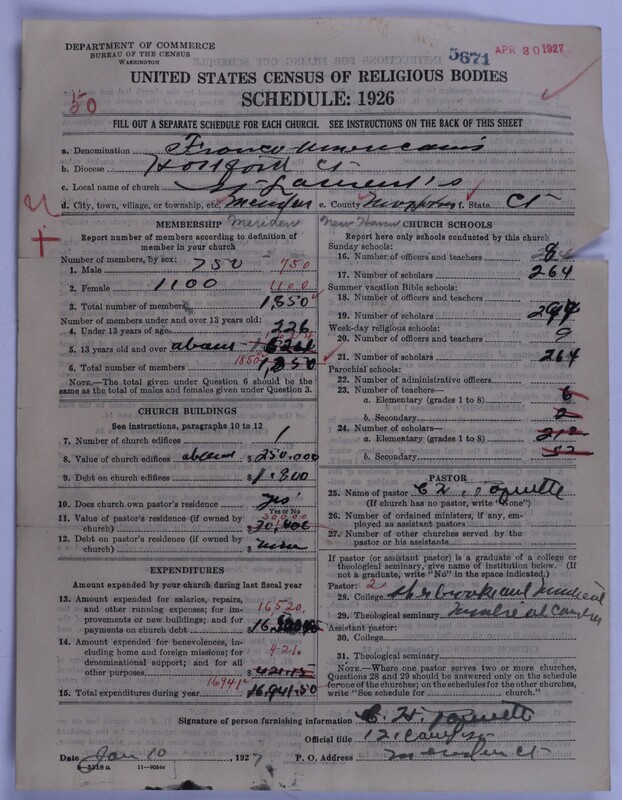 DEPARTMENT OF COMMERCE
BUREAU OF THE CENSUS
WASHINGTON
5671
APR 30 1927
UNITED STATES CENSUS OF RELIGIOUS BODIES
SCHEDULE: 1926
50
FILL OUT A SEPARATE SCHEDULE FOR EACH CHURCH. SEE INSTRUCTIONS ON THE BACK OF THIS SHEET
a. Denomination Franco americans
b. Diocese Hartford Ct
c. Local name of church St Laurent's
d. City, town, village, or township, etc. Meriden e. County f. State Ct
Meriden New Haven
MEMBERSHIP
Report number of members according to definition of member in your church
Number of members, by sex:
1. Male 750 750
2. Female 1100 1100
3. Total number of members 1,850
Number of members under and over 13 years old:
4. Under 13 years of age 226
5. 13 years old and over about
6. Total number of members 1850 1,850
NOTE.—The total given under Question 6 should be the same as the total of males and females given under Question 3.
CHURCH BUILDINGS
See instructions, paragraphs 10 to 12
7. Number of church edifices 1
8. Value of church edifices about $ 250.000
9. Debt on church edifices $ 1.800
10. Does church own pastor's residence yes
Yes or No
11. Value of pastor's residence (if owned by church) $
12. Debt on pastor's residence (if owned by church) $ none
EXPENDITURES
Amount expended by your church during last fiscal year
13. Amount expended for salaries, repairs, and other running expenses; for improvements or new buildings; and for payments on church debt $ 16520.
14. Amount expended for benevolences, including home and foreign missions; for denominational support; and for all other purposes $ 421.
15. Total expenditures during year 16941 $ 16941.50
CHURCH SCHOOLS
Report here only schools conducted by this church
Sunday schools:
16. Number of officers and teachers 8
17. Number of scholars 264
Summer vacation Bible schools:
18. Number of officers and teachers
19. Number of scholars
Week-day religious schools:
20. Number of officers and teachers 9
21. Number of scholars 264
Parochial schools:
22. Number of administrative officers
23. Number of teachers—
a. Elementary (grades 1 to 8) 6
b. Secondary 2
24. Number of scholars—
a. Elementary (grades 1 to 8) 212
b. Secondary 52
PASTOR
25. Name of pastor
(If church has no pastor, write "None")
26. Number of ordained ministers, if any, employed as assistant pastors
27. Number of other churches served by the pastor or his assistants
If pastor (or assistant pastor) is a graduate of a college or theological seminary, give name of institution below. (If not a graduate, write "No" in the space indicated.)
Pastor: 2
28. College Sherbrooke and Montreal
29. Theological seminary Montreal Canada
Assistant pastor:
30. College
31. Theological seminary
NOTE.—Where one pastor serves two or more churches, Questions 28 and 29 should be answered only on the schedule for one of the churches; on the schedules for the other churches, write "See schedule for church."
Signature of person furnishing information
Official title 121 Camp st
Date Jan 10, 1927 P. O. Address Meriden Ct
8—5318 a 11—9054